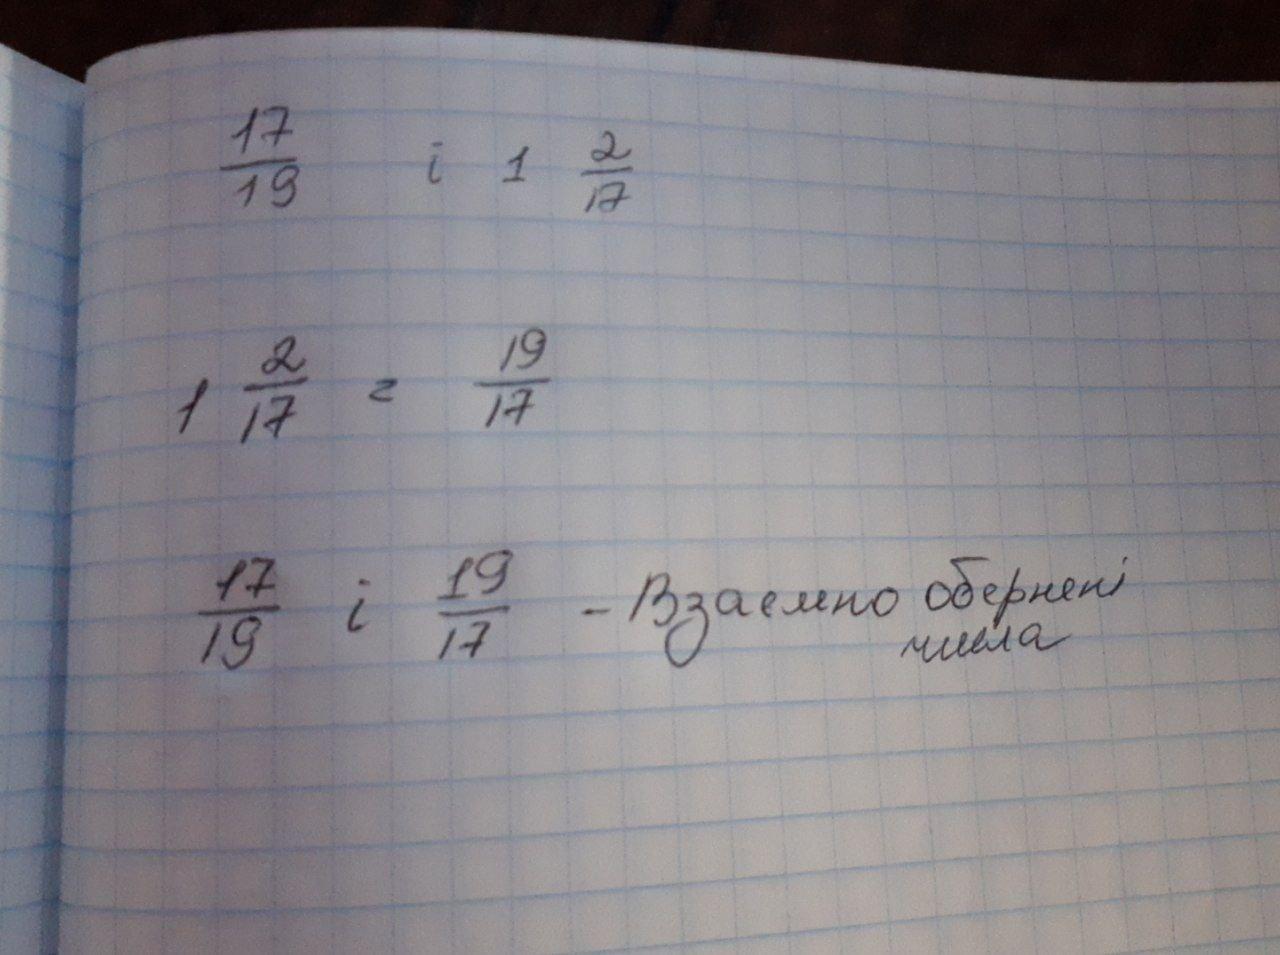 17/19 і 1 2/17
1 2/17 = 19/17
17/19 і 19/17 - Взаємно обернені
числа